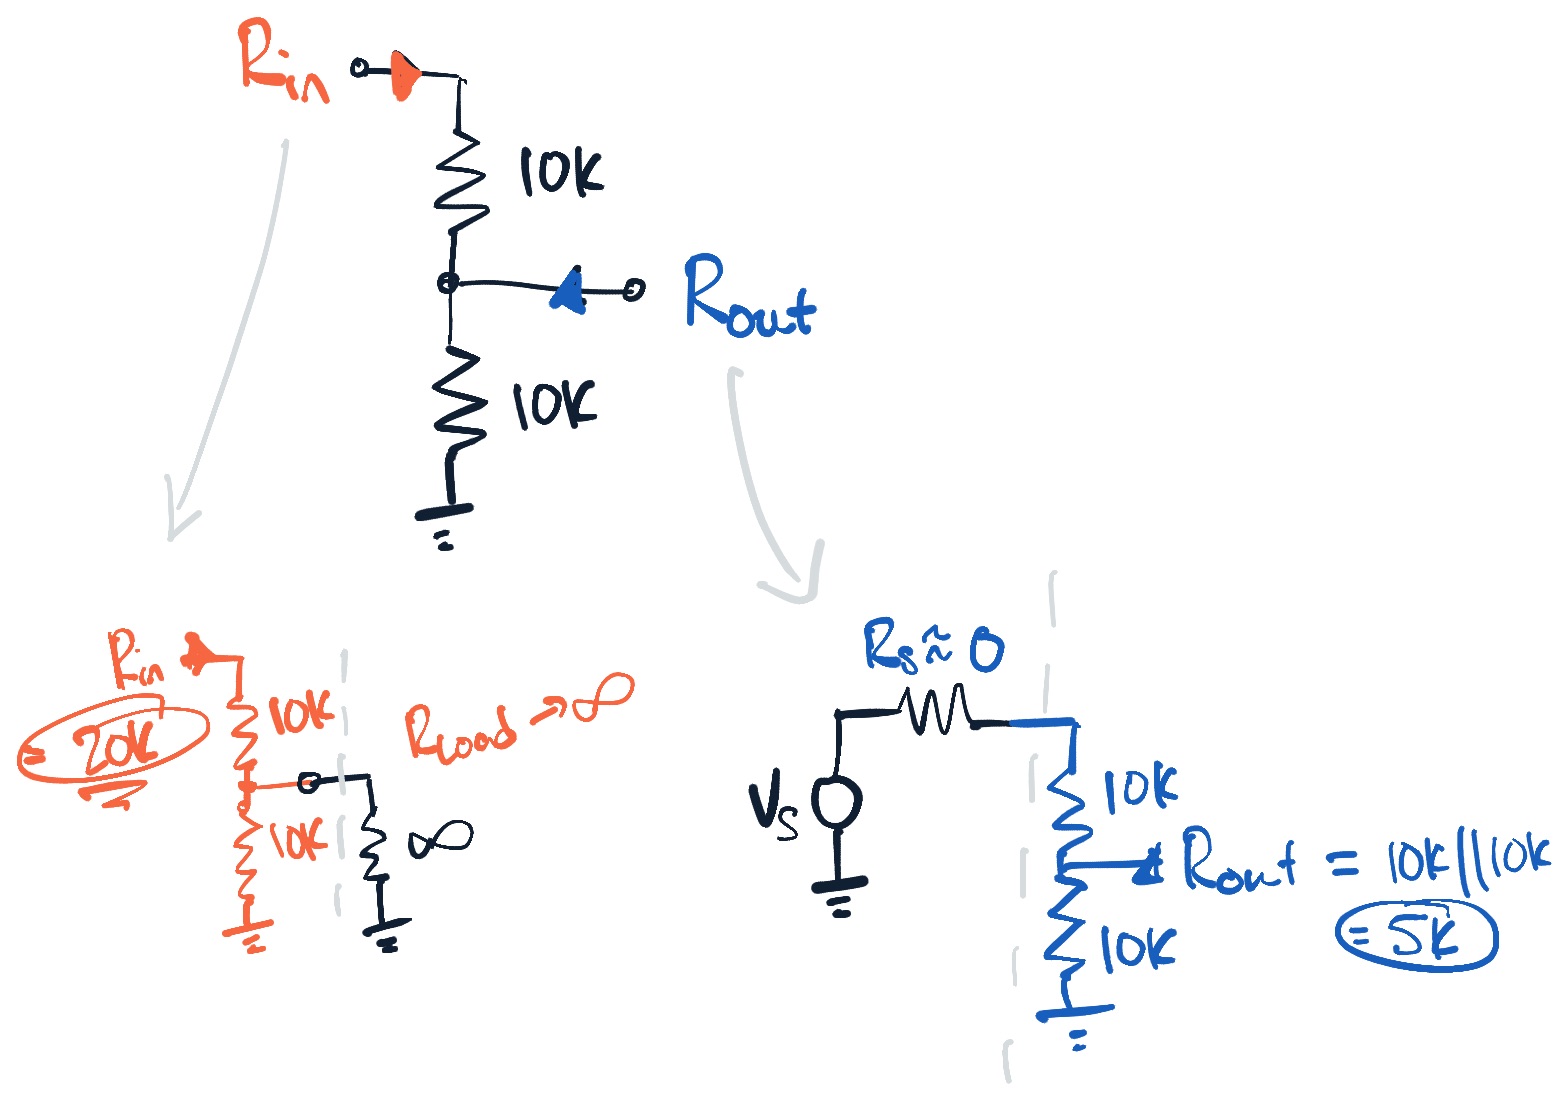 Rin
10K
Rout
10K
Rin
= 20K
10K
10K
Rload → ∞
∞
Rs ≈ 0
Vs
10K
Rout = 10K||10K
= 5K
10K